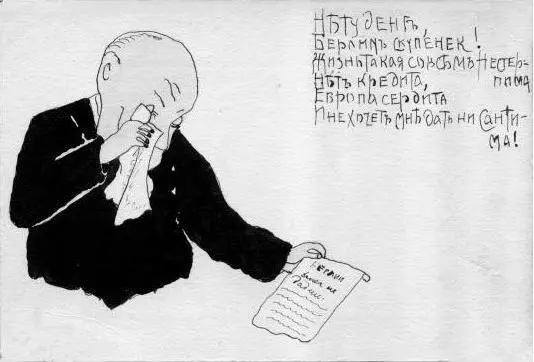 Нѣту денег,
Берлинъ скупенек!
Жизнь такая совсѣмъ нестер-
пима
Нѣтъ кредита,
Европа сердита
И не хочетъ мнѣ дать ни санти-
ма!
Берлин